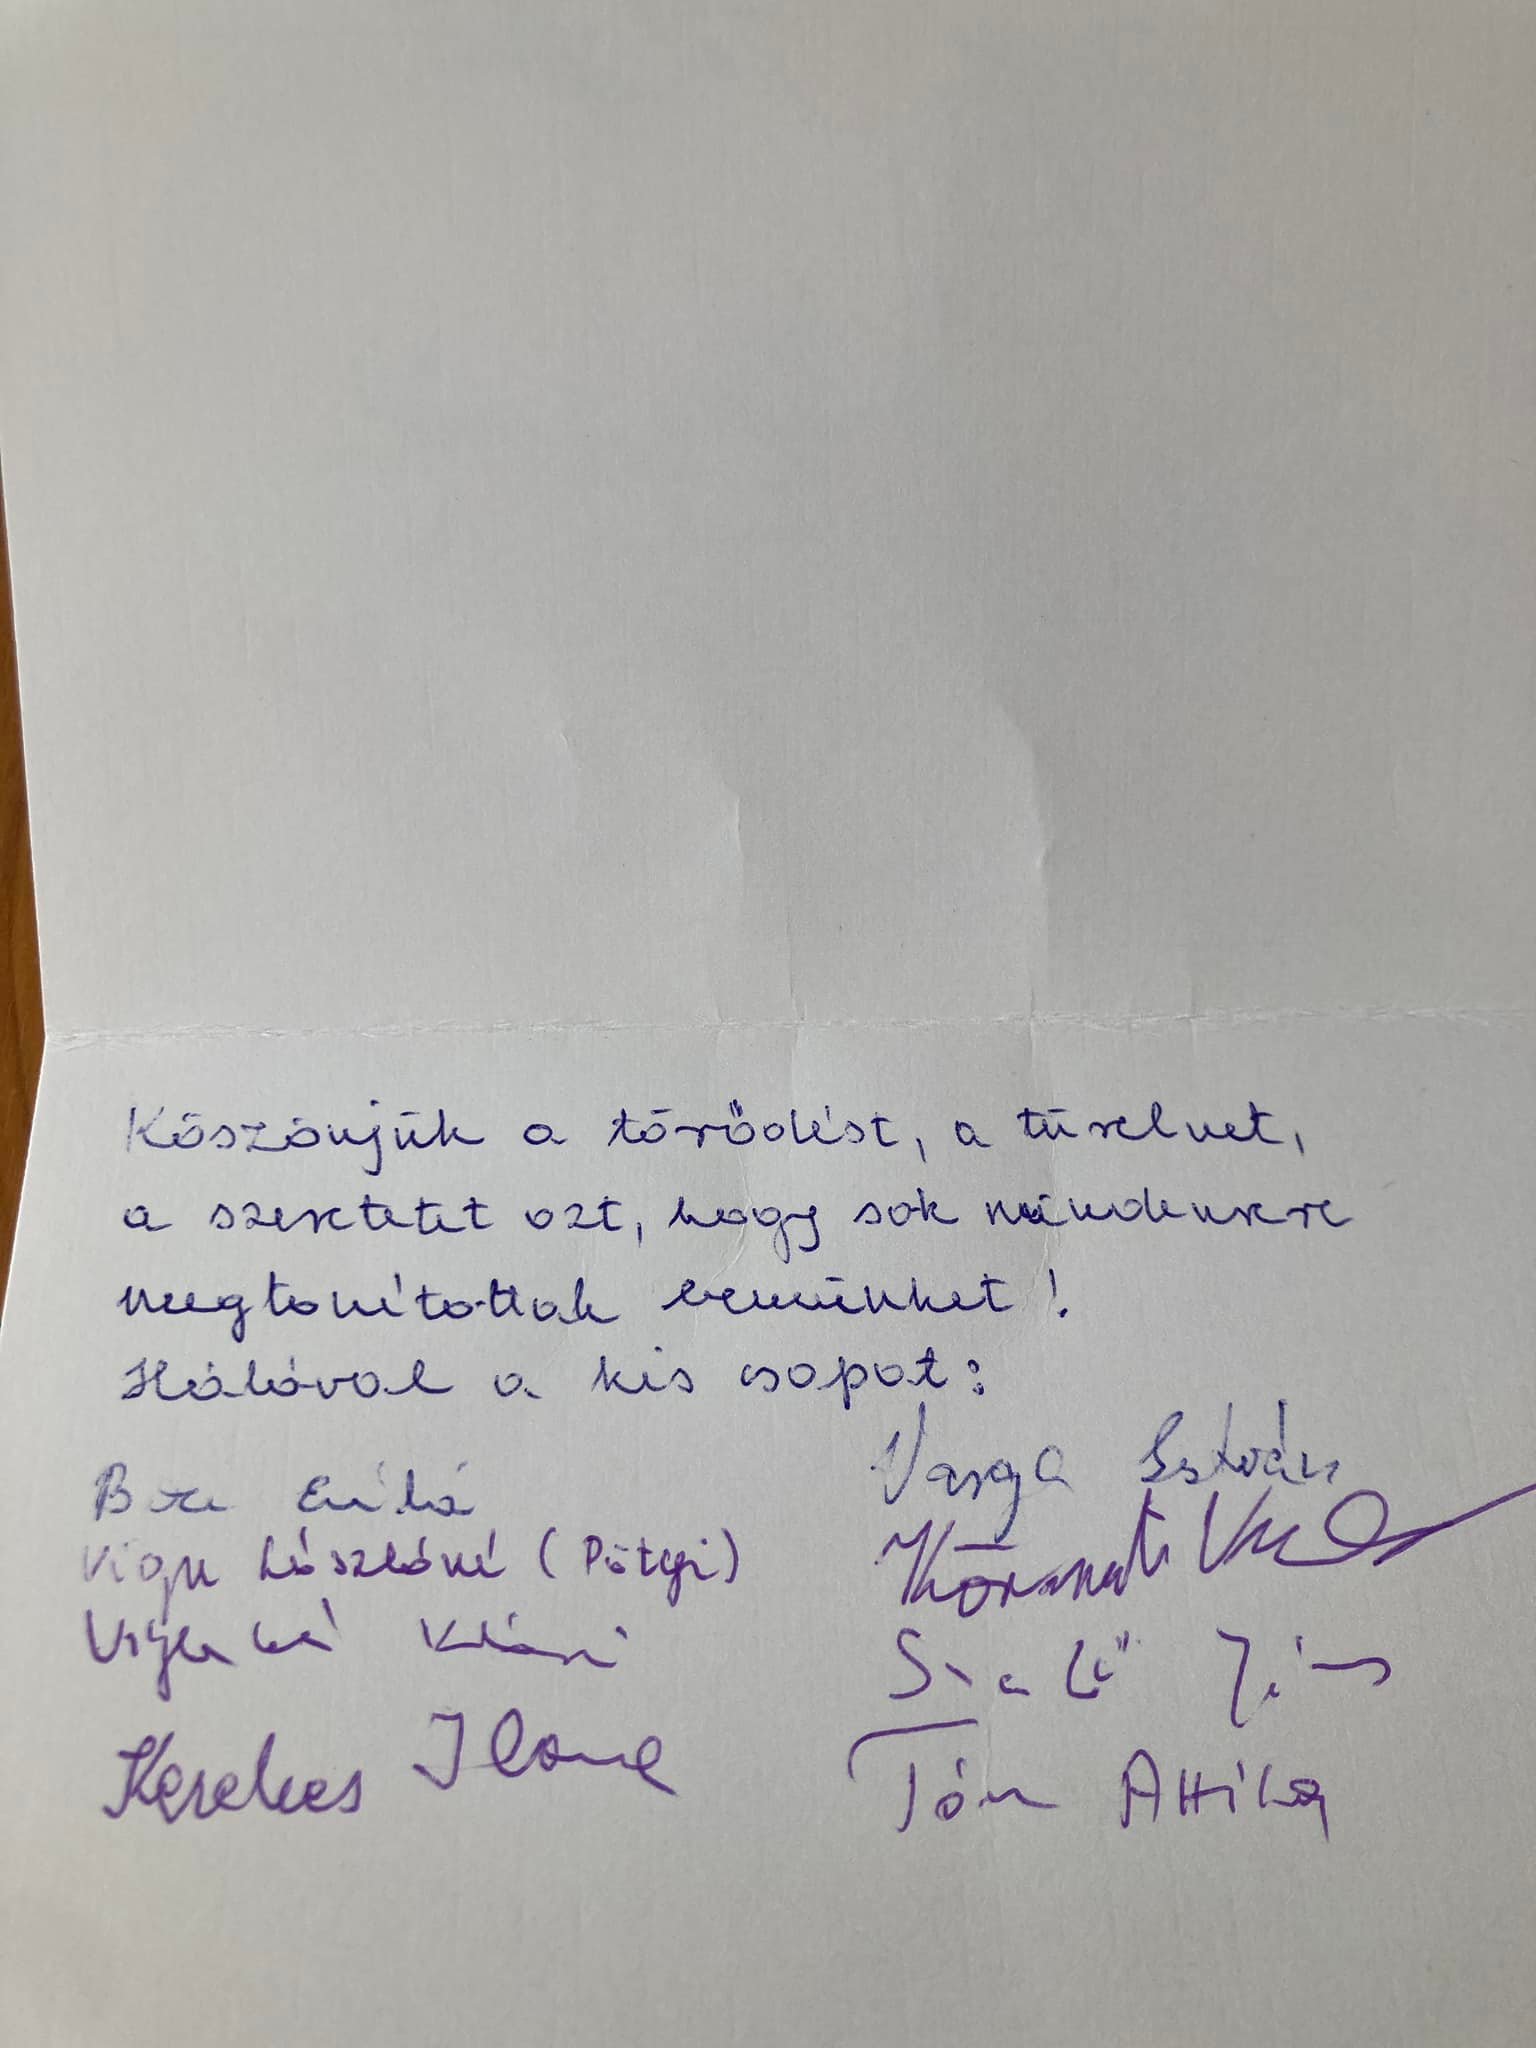 Köszönjük a törődést, a türelmet,
a szeretetet azt, hogy sok mindenre
megtanítottak bennünket!
Hálával a kis csopot:
Varga István
László​né (Pötyi)
Klári
Kerekes Ilona
Attila